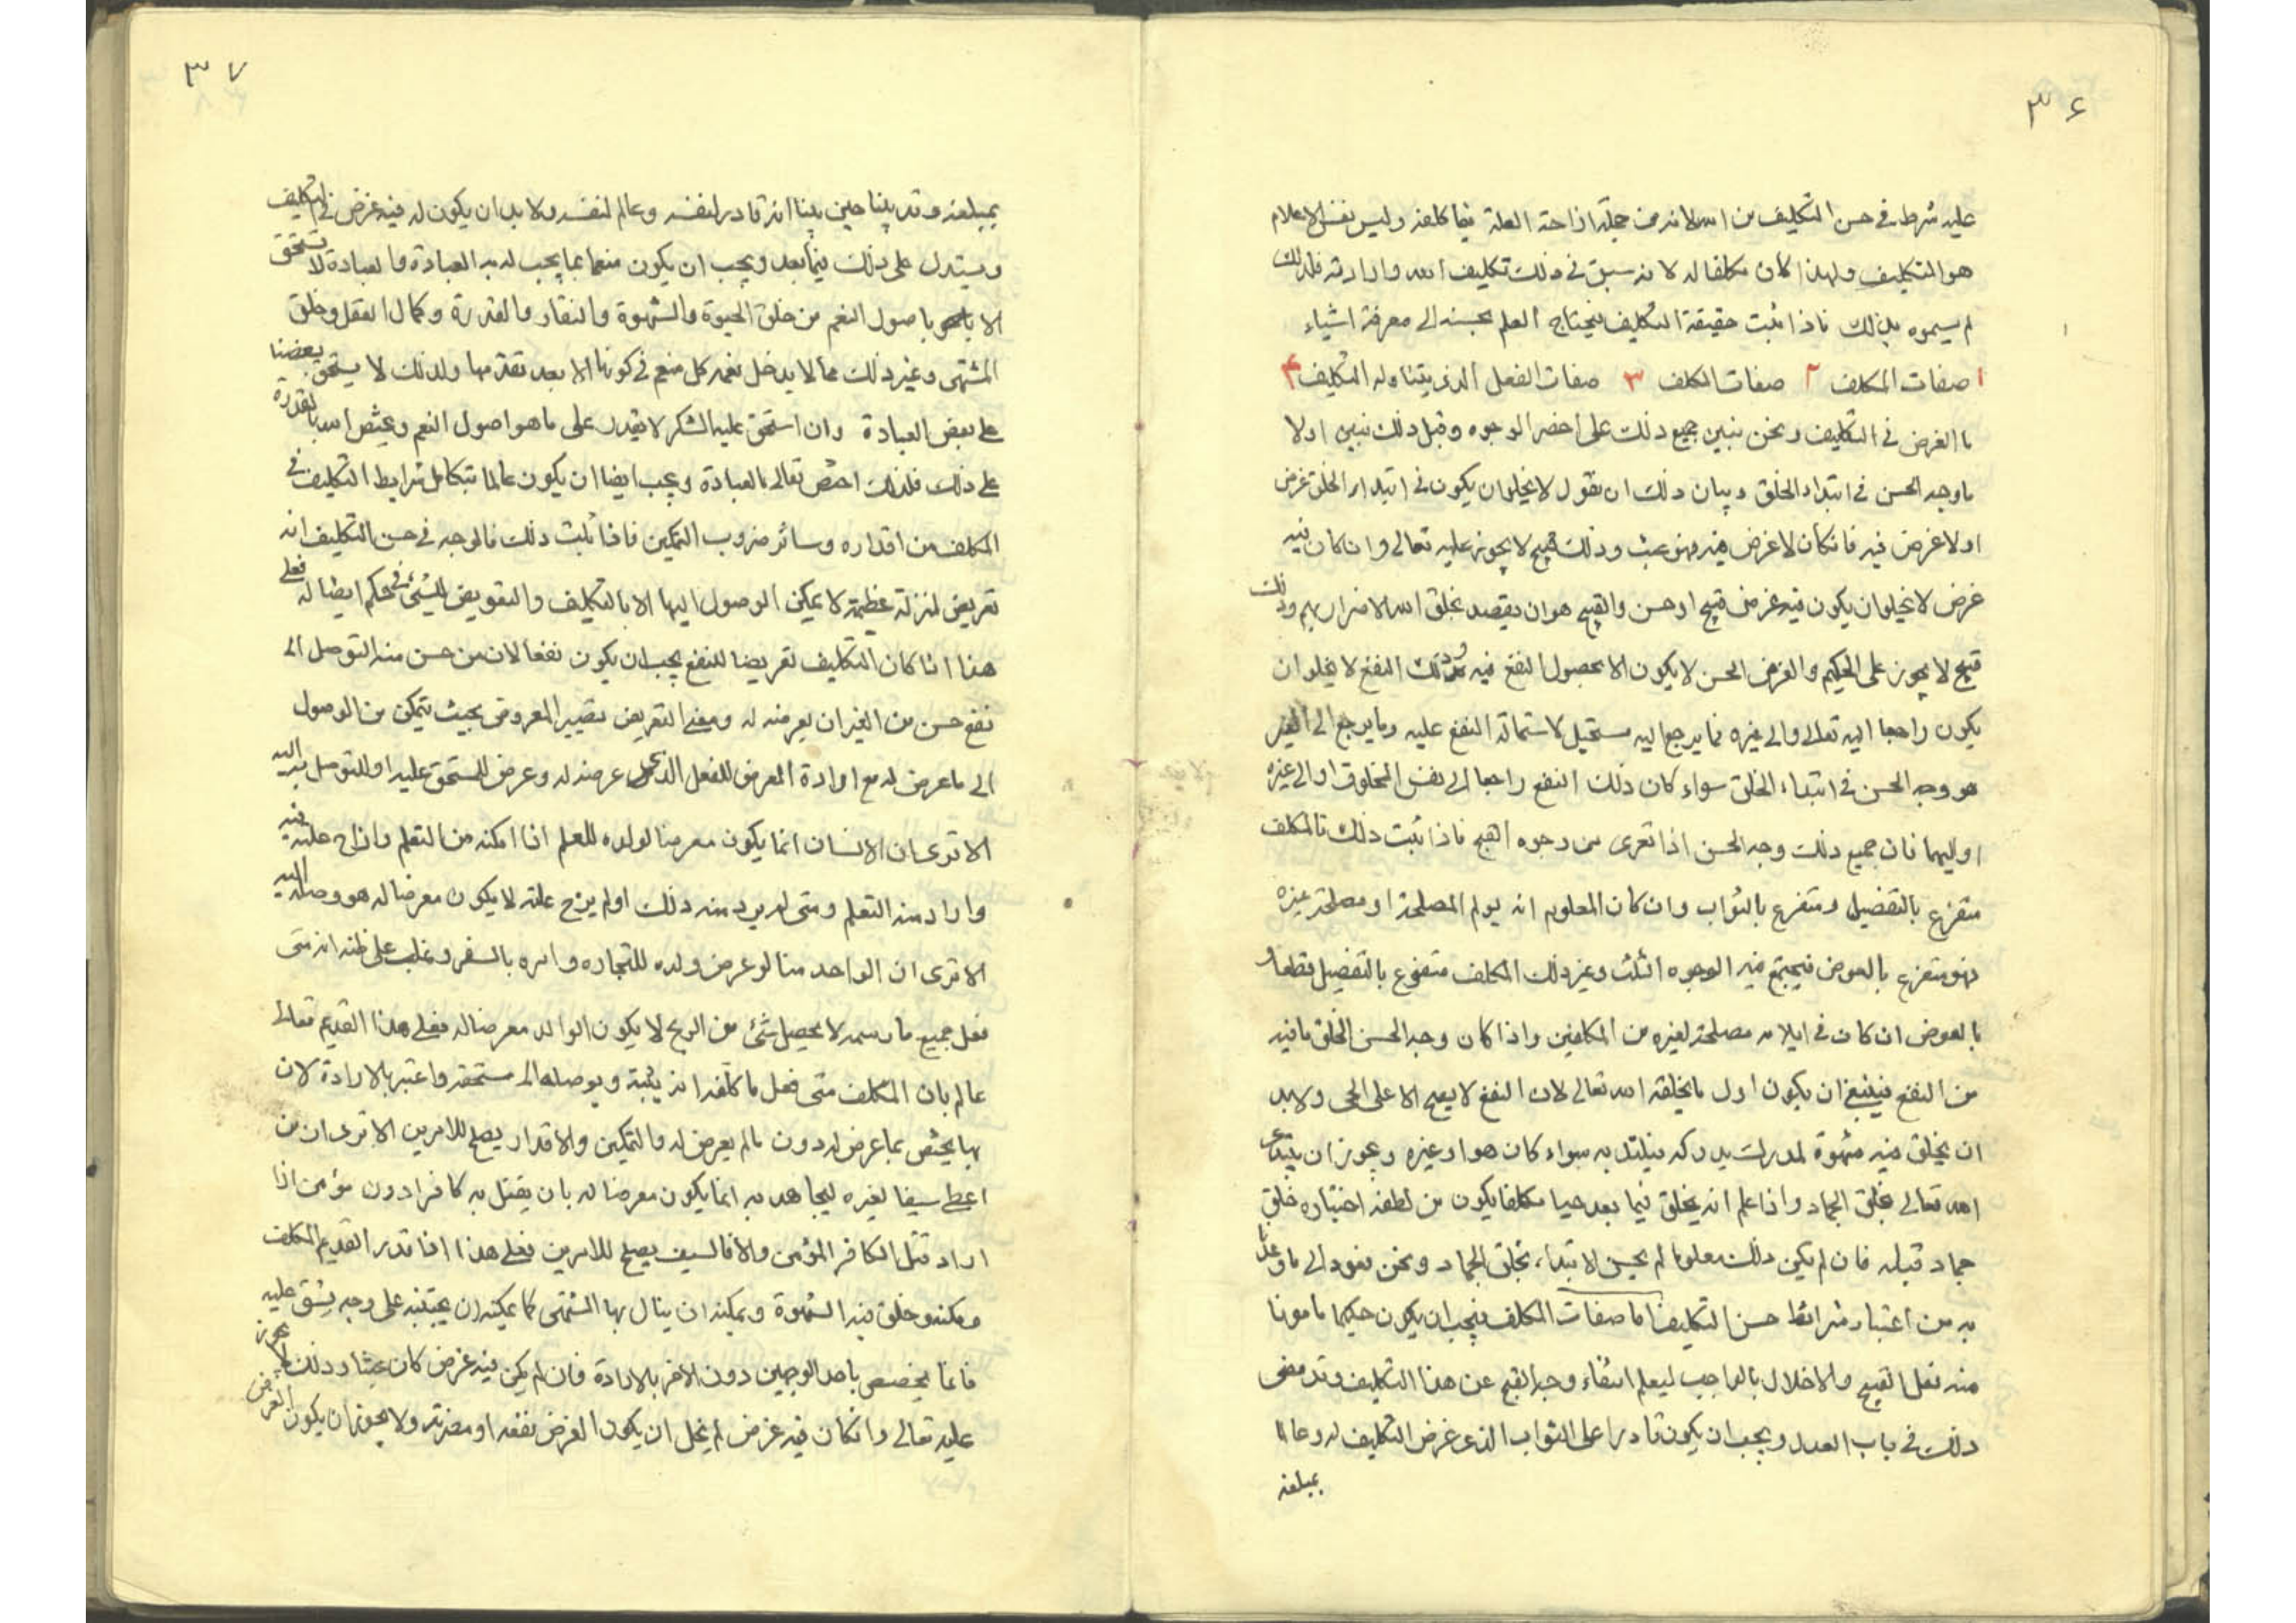 ٣٦
عليه شرط في حسن التكليف من الله لانه من جملة ازاحة العلة فيما كلفه وليس نفس الاعلام
هو التكليف ولهذا كان مكلفا له لانه سبق في ذلك تكليف الله وارادته فلذلك
لم يسموه بذلك فاذا ثبت حقيقة التكليف فيحتاج العلم بحسنه الى معرفة اشياء
١ صفات المكلف ٢ صفات المكلف ٣ صفات الفعل الذي يتناوله التكليف ۴
ما الغرض في التكليف ونحن نبين جميع ذلك على اخصر الوجوه وقبل ذلك نبين اولا
ما وجه الحسن في ابتداء الخلق وبيان ذلك ان نقول لا يخلو ان يكون في ابتداء الخلق غرض
اولا غرض فيه فان كان لا غرض فيه فهو عبث وذلك قبيح لا يجوز عليه تعالى وان كان فيه
غرض لا يخلو ان يكون فيه غرض قبيح او حسن والقبيح هو ان يقصد بخلق الله الاضرار بهم وذلك
قبيح لا يجوز على الحكيم والغرض الحسن لا يكون الا بحصول النفع فيه وذلك النفع لا يخلو ان
يكون راجعا اليه تعالى والى غيره فما يرجع اليه مستحيل لاستحالة النفع عليه وما يرجع الى الغير
هو وجه الحسن في ابتداء الخلق سواء كان ذلك النفع راجعا الى نفس المخلوق او الى غيره
او اليهما فان جميع ذلك وجه الحسن اذا تعرى من وجوه القبح فاذا ثبت ذلك فالمكلف
متفرع بالتفضيل ومتفرع بالثواب وان كان المعلوم انه يولم المصلحة او مصلحة غيره
فهو متفرع بالعوض فيجتمع فيه الوجوه الثلث وغير ذلك المكلف متفوع بالتفضيل قطعا و
بالعوض ان كان في ايلامه مصلحة لغيره من المكلفين واذا كان وجه الحسن الخلق ما فيه
من النفع فينبغي ان يكون اول ما يخلقه الله تعالى لان النفع لا يصح الا على الحي ولا بد
ان يخلق فيه شهوة لمدرك يدركه فيلتذ به سواء كان هو او غيره ويجوز ان يبتدء
الله تعالى بخلق الجماد واذا علم انه يخلق فيما بعد حيا مكلفا يكون من لطفه اختباره خلق
جماد قبله فان لم يكن ذلك معلوما لم يحسن الابتداء بخلق الجماد ونحن نعود الى ما وعدنا
به من اعتبار شرائط حسن التكليف اما صفات المكلف فيجب ان يكون حكيما مامونا
منه فعل القبيح والاخلال بالواجب ليعلم انتفاء وجه القبح عن هذا التكليف وقد مضى
ذلك في باب العدل ويجب ان يكون قادرا على الثواب الذي غرض التكليف له وعالما
بمبلغه
٣٧
بمبلغه وقد بينا حين بينا انه قادر لنفسه وعالم لنفسه ولا بد ان يكون له فيه غرض في التكليف
ويستدل على ذلك فيما بعد ويجب ان يكون منعما بما يجب له به العبادة والعبادة لا تستحق
الا باصول النعم من خلق الحيوة والشهوة والنفار والقدرة وكمال العقل وخلق
المشتهى وغير ذلك مما لا يدخل نعمه كل منعم في كونها الا بعد تقدمها ولذلك لا يستحق بعضنا
على بعض العبادة وان استحق عليه الشكر لا يقدر على ما هو اصول النعم ويختص الله بالقدرة
على ذلك فلذلك اختص تعالى بالعبادة ويجب ايضا ان يكون عالما بتكامل شرايط التكليف في
المكلف من اقداره وسائر ضروب التمكين فاذا ثبت ذلك فالوجه في حسن التكليف انه
تعريض لمنزلة عظيمة لا يمكن الوصول اليها الا بالتكليف والتعويض للشئ في حكم ايضا له فعلى
هذا اذا كان التكليف تعريضا للنفع يجب ان يكون نفعا لان من حسن منه التوصل الى
نفع حسن من الغير ان يعرضه له ومعنى التعريض تصيير المعروض بحيث يتمكن من الوصول
الى ما عرض له مع ارادة المعرض للفعل الذي عرضه له وعرض المستحق عليه او للتوصل به اليه
الا ترى ان الانسان انما يكون معرضا لولده للعلم اذا امكنه من التعلم وازاح علته فيه
واراد منه التعلم ومتى لم يرد منه ذلك او لم يزح علته لا يكون معرضا له هو وصله اليه
الا ترى ان الواحد منا لو عرض ولده للتجاره وامره بالسفر وغلب على ظنه انه متى
فعل جميع ما رسمه لا يحصل شئ من الربح لا يكون الوالد معرضا له فعلى هذا القديم تعالى
عالم بان المكلف متى فعل ما كلفه انه يثيبه ويوصله الى مستحقه واعتبر بالارادة لان
بها يختص بما عرض له دون ما لم يعرض له والتمكين والاقدار يصلح للامرين الا ترى ان من
اعطى سيفا لغيره ليجاهد به انما يكون معرضا له بان يقتل به كافرا دون مؤمن اذا
اراد قتل الكافر المؤمن والا فالسيف يصلح للامرين فعلى هذا اذا قدر القديم المكلف
ومكنه وخلق فيه الشهوة ويمكنه ان ينال بها المشتهى كما يمكنه ان يجتنبه على وجه يشق عليه
فانما يخصص باحد الوجهين دون الاخر بالارادة فان لم يكن فيه غرض كان عبثا وذلك لا يجوز
عليه تعالى وان كان فيه غرض لم يخل ان يكون الغرض نفعه او مضرته ولا يجوز ان يكون الغرض